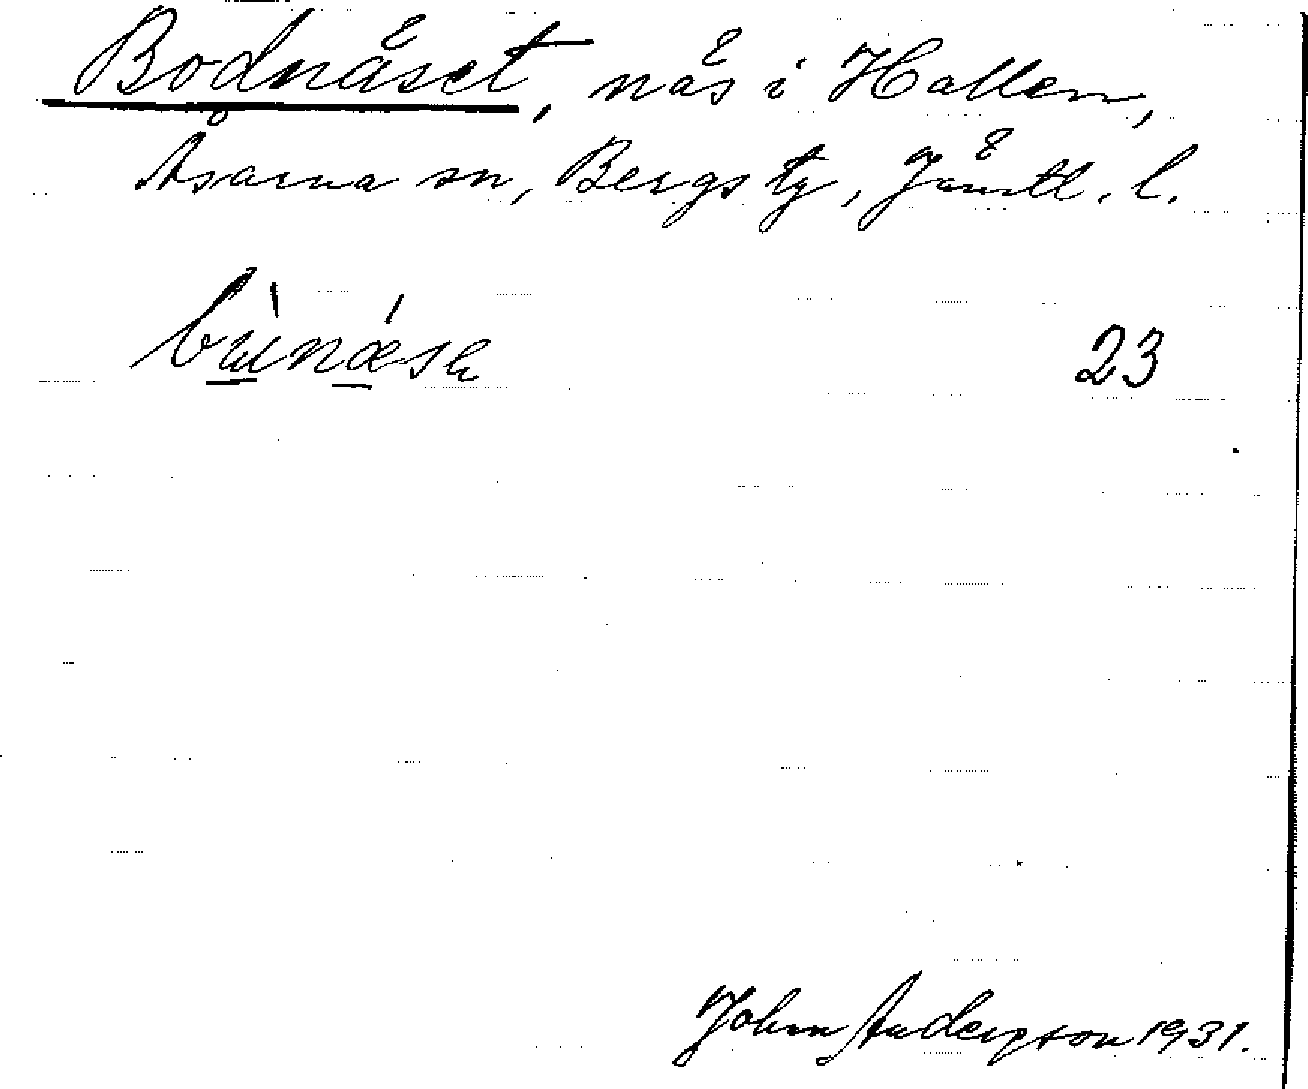 Bodnäset, näs i Hallen,
Åsarna sn, Bergs tg, Jämtl. l.
23
John Anderson 1931.